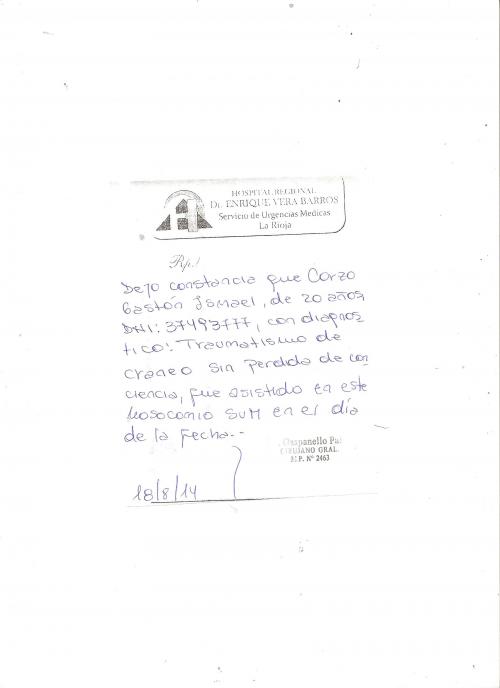 HOSPITAL REGIONAL
Dr. ENRIQUE VERA BARROS
Servicio de Urgencias Medicas
La Rioja
Rp.:
Dejo constancia que Corzo
Gastón Ismael, de 20 años,
DNI: 37493777, con diagnos
tico: Traumatismo de
craneo sin perdida de con
ciencia, fue asistido en este
Nosocomio SUM en el día
de la fecha.-
Gaspanello Pa
CIRUJANO GRAL.
M.P. Nº 2463
18/8/14